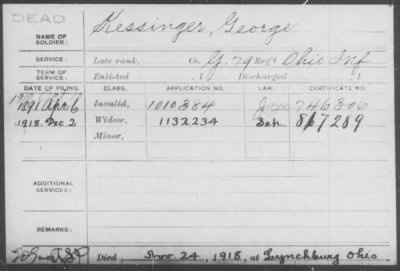 DEAD
NAME OF SOLDIER: Kessinger, George
SERVICE: Late rank, Co. G. 79 Reg't Ohio Inf
TERM OF SERVICE: Enlisted , 1 Discharged , 1
DATE OF FILING. CLASS. APPLICATION NO. LAW. CERTIFICATE NO.
1891 April 6 Invalid, 1010384 746306
1918. Dec 2 Widow, 1132234 867289
Minor,
ADDITIONAL SERVICES:
REMARKS:
Died Nov 24, 1918, at Lynchburg Ohio